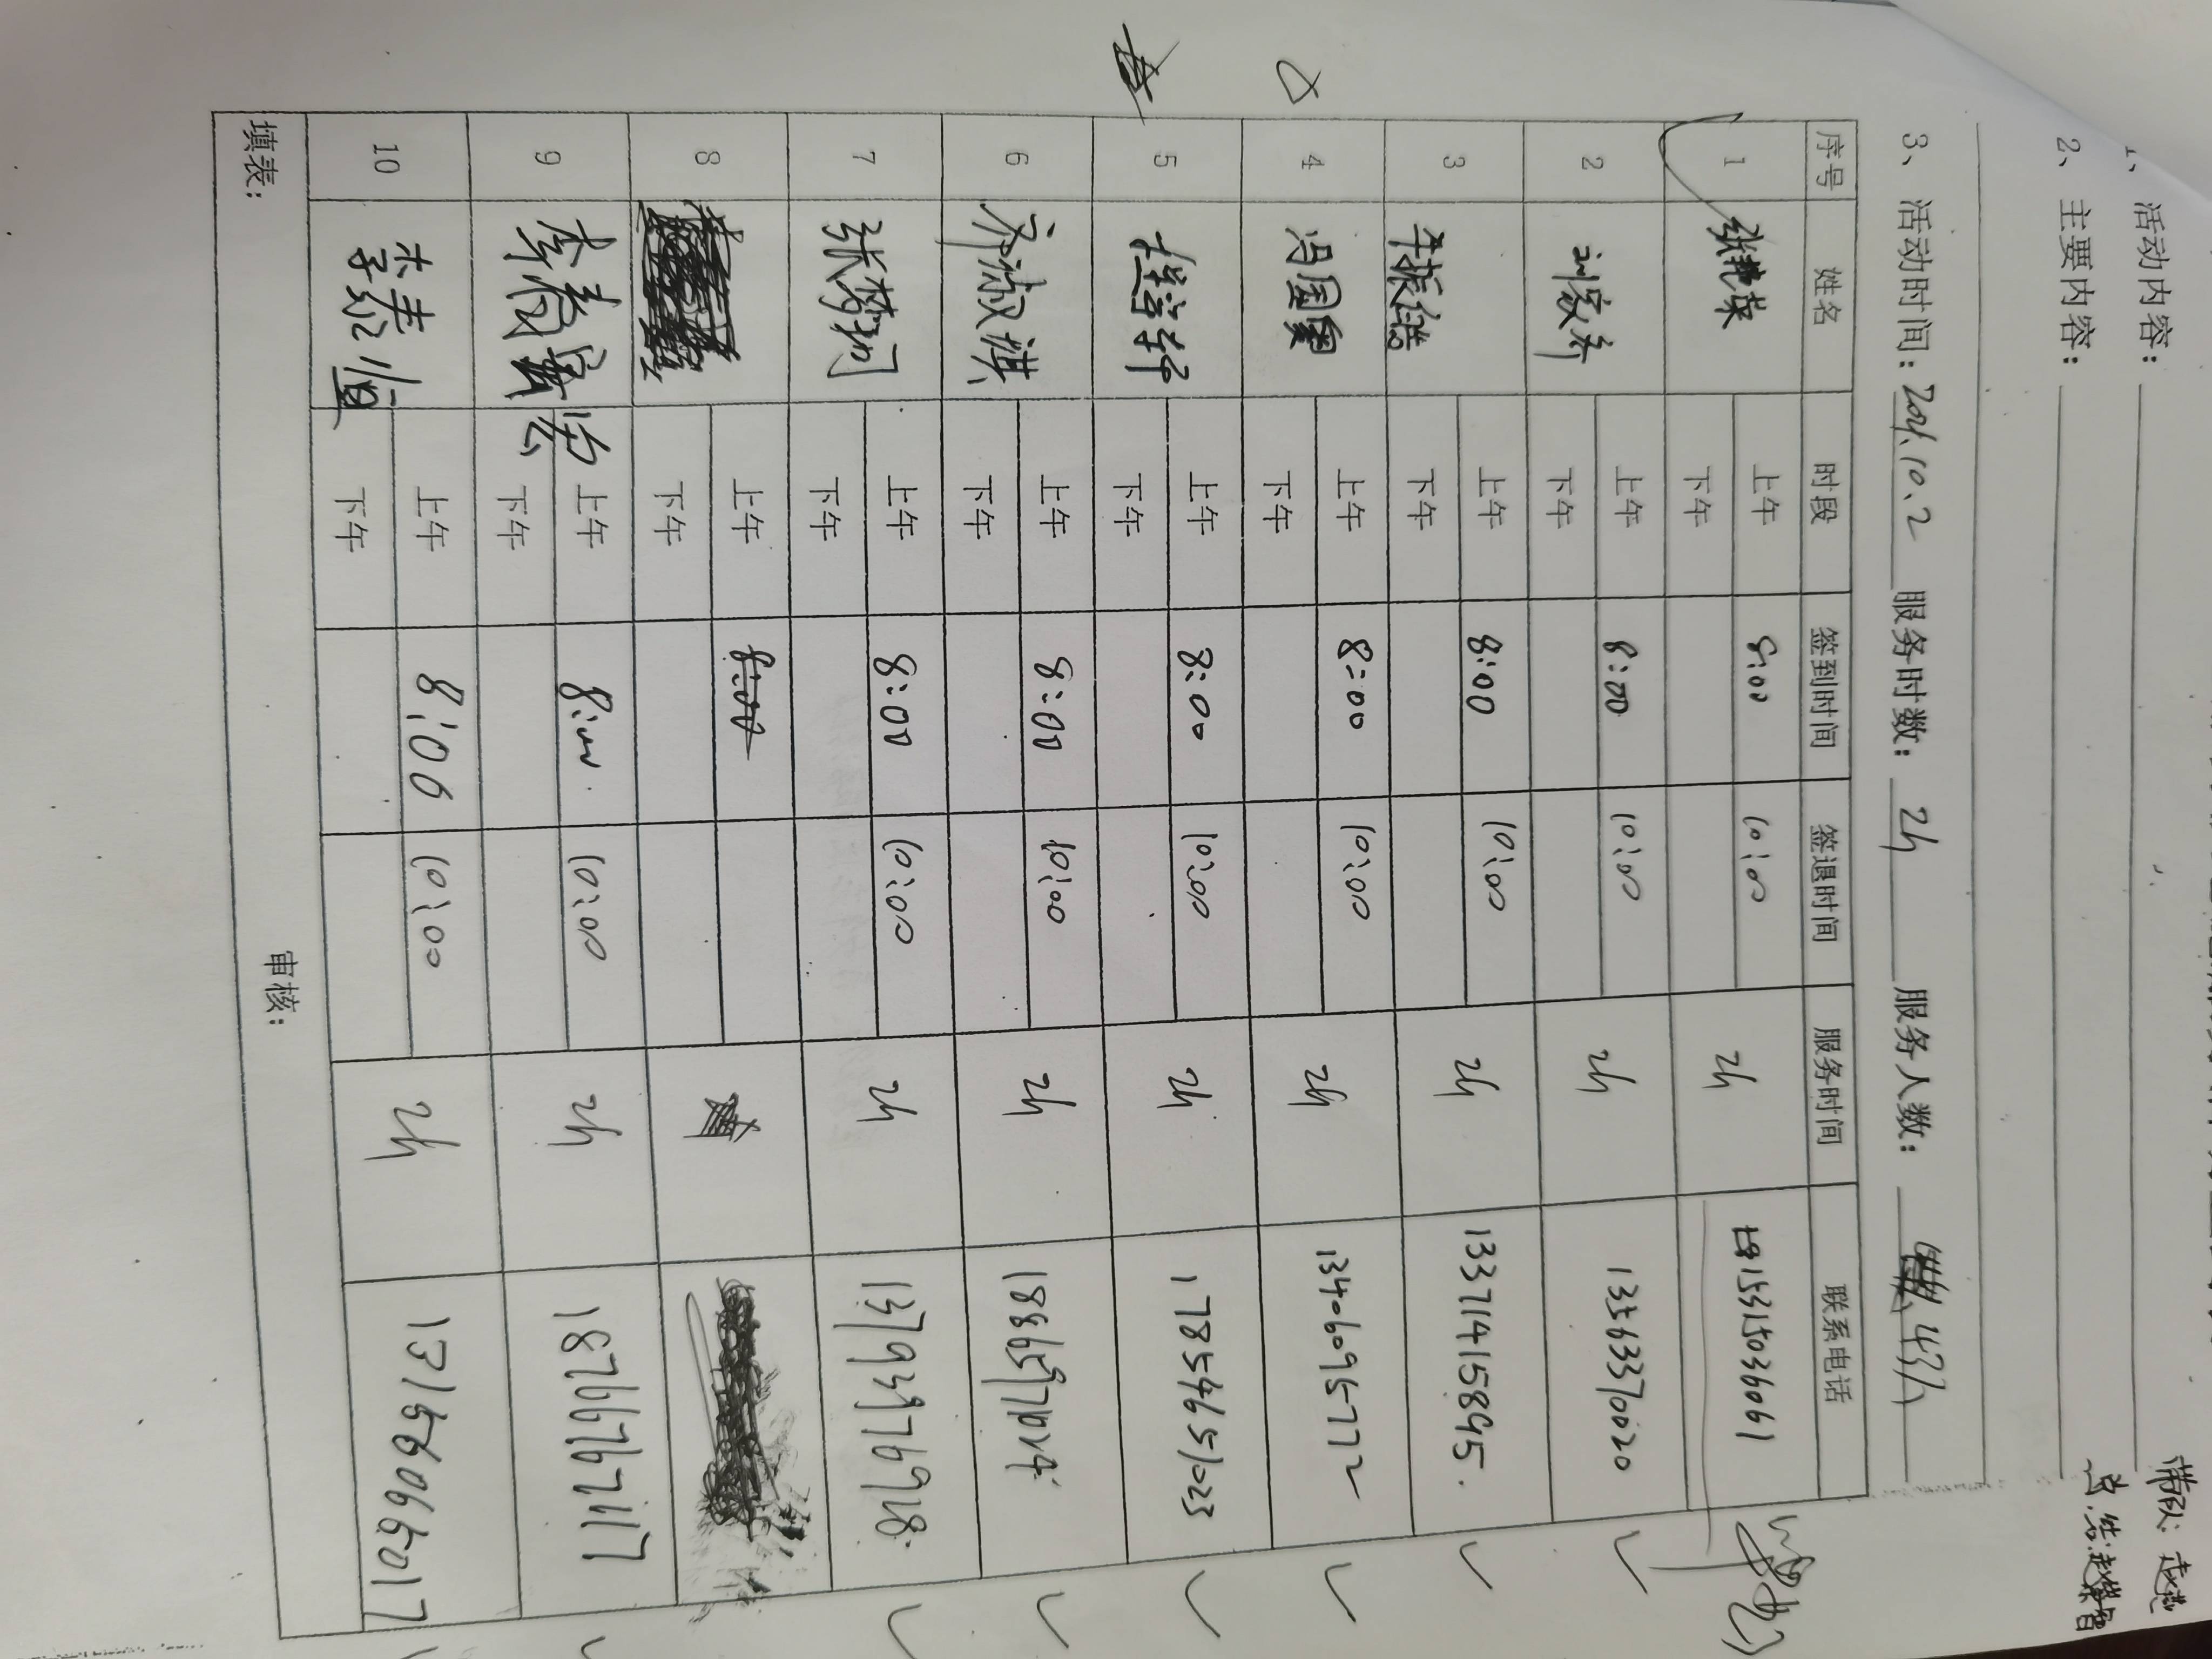 1、活动内容：
带队：赵燕
2、主要内容：
3、活动时间：2021.10.2 服务时数：2h 服务人数：43人
序号 姓名 时段 签到时间 签退时间 服务时间 联系电话
1 上午 8:00 10:00 2h 18153150361
下午
2 刘家齐 上午 8:00 10:00 2h 13563370020
下午
3 牛振继 上午 8:00 10:00 2h 13371415895.
下午
4 冯国 上午 8:00 10:00 2h 13406095772
下午
5 上午 8:00 10:00 2h 17854651023
下午
6 齐淑淇 上午 8:00 10:00 2h
下午
7 张梦珂 上午 8:00 10:00 2h 13793976978
下午
8 上午 8:00
下午
9 李 上午 8:00 10:00 2h 18766767117
下午
10 李泰恒 上午 8:00 10:00 2h 13156096017
下午
填表： 审核：